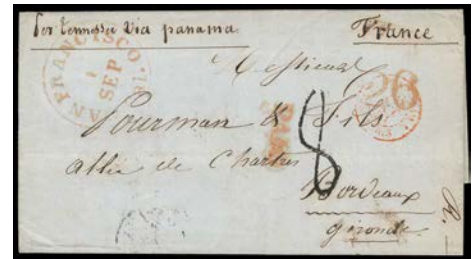 per tennessee via panama
France
SAN FRANCISCO
1
SEP
Messieurs
26
PAID
Pourman & Fils
8
allée de Chartres
Bordeaux
gironde